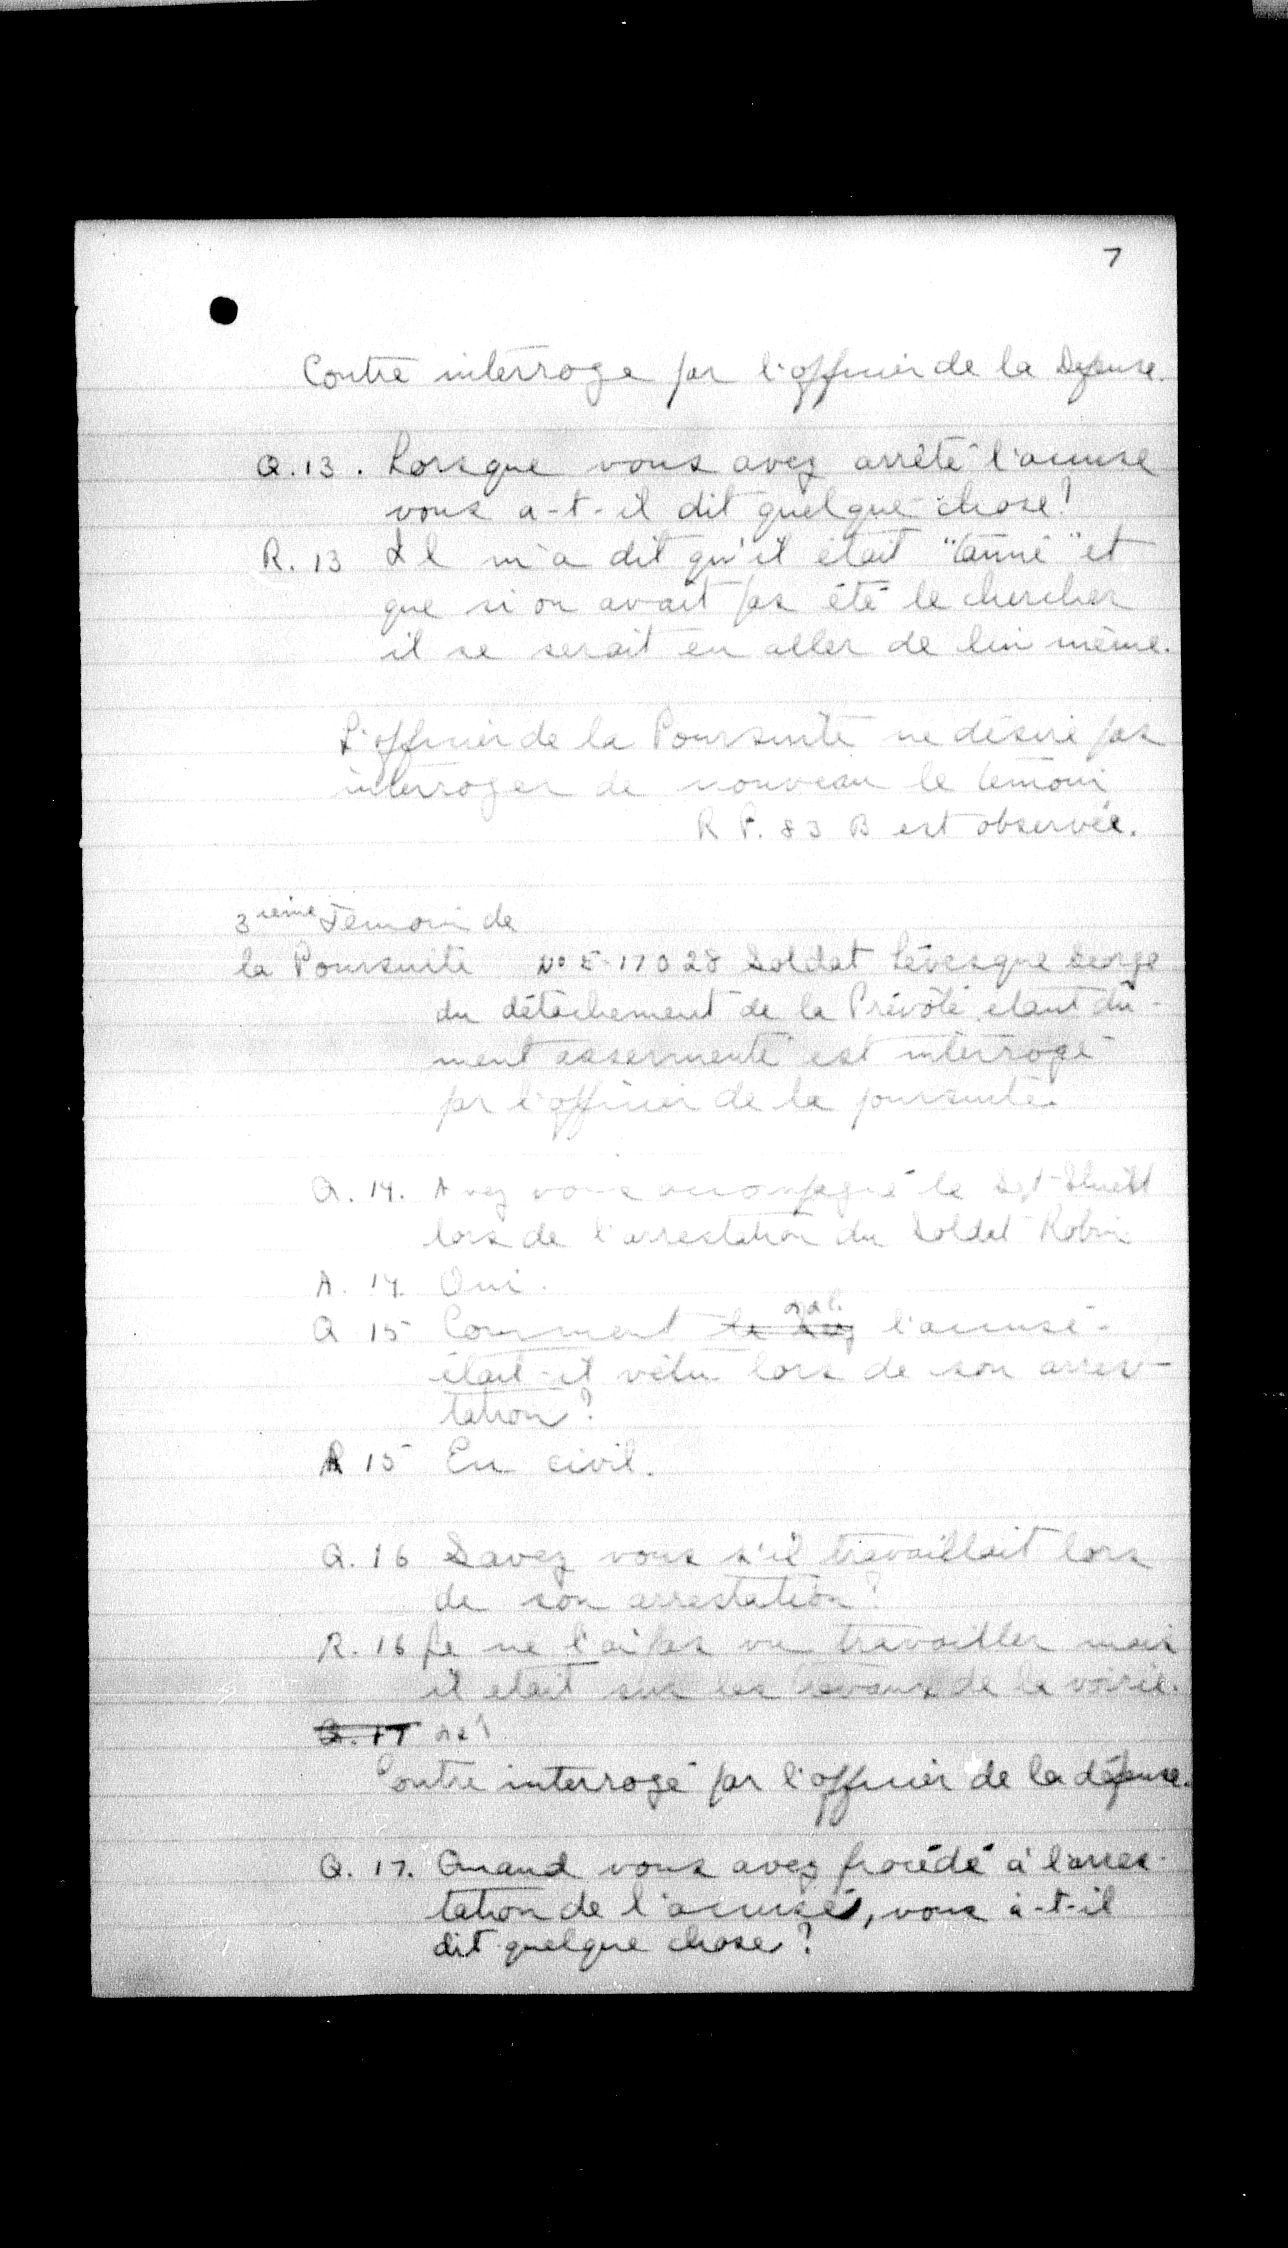 7
Contre interroge par l'officier de la Défense.
Q.13. Lorsque vous avez arrêté l'accusé
vous a-t-il dit quelque chose?
R. 13 Il m'a dit qu'il était "tanné" et
que si on avait pas été le chercher
il se serait en aller de lui même.
L'officier de la Poursuite ne désire pas
interroger de nouveau le témoin
R P. 83 B est observée.
3ieme Témoin de
la Poursuite No E-17028 Soldat Lévesque George
du détachement de la Prévôté, etant dû-
ment assermenté est interrogé
par l'officier de la poursuite.
Q. 14. Avez vous accompagné le Sgt
lors de l'arrestation du Soldat Robin
A. 14. Oui.
Q 15 Comment l'accusé
était-il vêtu lors de son arres-
tation?
R 15 En civil.
Q. 16 Savez vous s'il travaillait lors
de son arrestation?
R. 16 Je ne l'ai pas vu travailler mais
il etait sur les travaux de la voirie.
Q. 17
Contre interrogé par l'officier de la défense.
Q. 17. Quand vous avez procédé à l'arres-
tation de l'accusé, vous a-t-il
dit quelque chose?